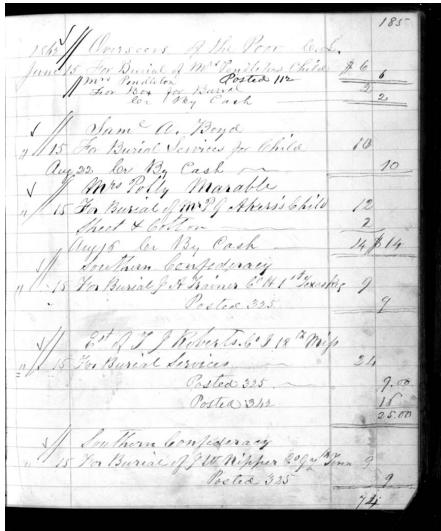 185
1862 Overseers of the Poor C.L.
June 15 For Burial of Mrs Pendletons Child $ 6
Mrs Pendleton Posted 112 6
For Box for Burial 2
Cr By Cash 2
Saml A. Boyd
" 15 For Burial Services for Child 10
Aug 22 Cr By Cash 10
Mrs Polly Marable
" 15 For Burial of Mr P G Akers's Child 12
Sheet & Cotton 2
Aug 18 Cr By Cash 14 $ 14
Southern Confederacy
" 15 For Burial J. A. Co H 1st Texas 9
Posted 325 9
Est of T J Roberts Co I 18th Miss
" 15 For Burial Services 24
Posted 325 9.00
Posted 342 15
25.00
Southern Confederacy
" 15 For Burial of J W Nipper Co Tenn 9
Posted 325 9
74